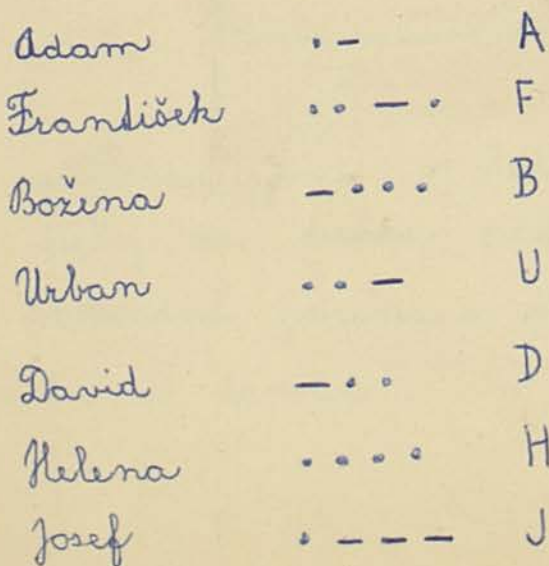 Adam · – A
František · · – · F
Božena – · · · B
Urban · · – U
David – · · D
Helena · · · · H
Josef · – – – J